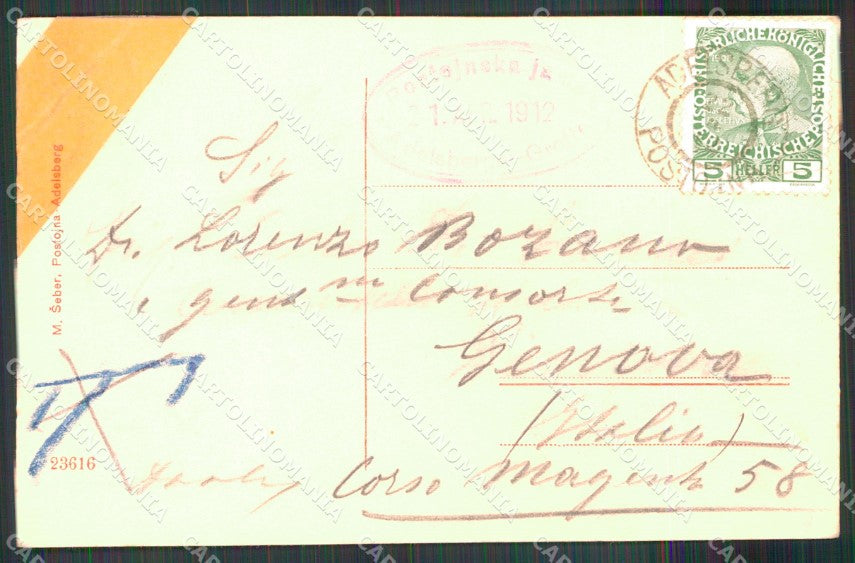 M. Šeber, Postojna Adelsberg
Postojnska ja
1912
Adelsberg
ADELSBERG
POSTOJNA
KAISERLICHE KÖNIGLICHE
ÖSTERREICHISCHE POST
5 HELLER 5
Sig
Dr. Lorenzo Bozano
e gent ma consorte
Genova
(Italia)
Corso Magenta 58
23616
CARTOLINOMANIA